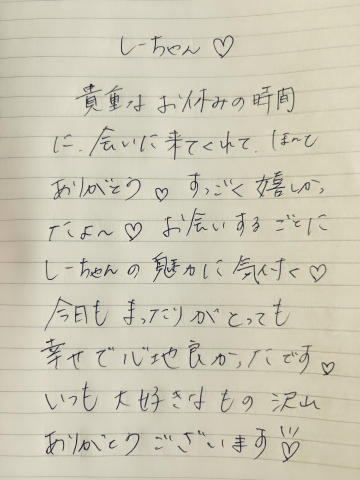 しーちゃん♡
貴重なお休みの時間
に、会いに来てくれて、ほんと
ありがとう♡すっごく嬉しかっ
たよ〜♡お会いするごとに
しーちゃんの魅力に気付く♡
今日もまったりがとっても
幸せで心地良かったです♡
いつも大好きなもの沢山
ありがとうございます♡